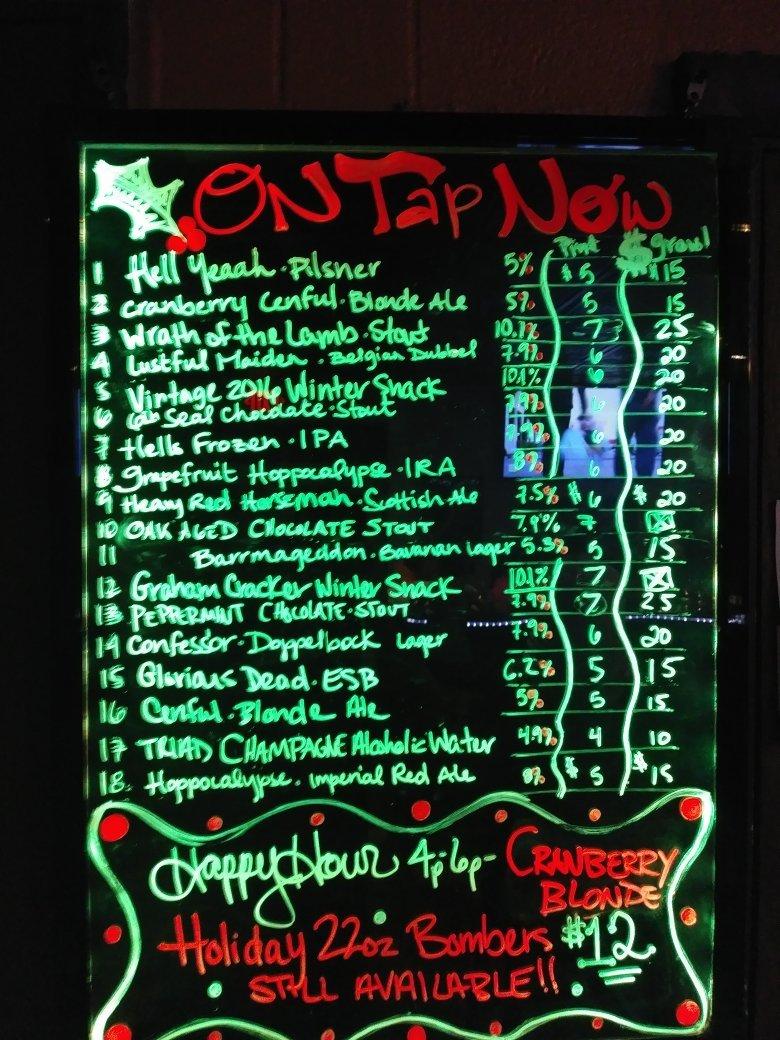 ON Tap Now
Pint $ growl
1 Hell Yeaah · Pilsner 5% $5 $15
2 Cranberry Cenful · Blonde Ale 5% 5 15
3 Wrath of the Lamb · Stout 10.1% 7 25
4 Lustful Maiden · Belgian Dubbel 7.9% 6 20
5 Vintage 2016 Winter Snack 10.1% 6 20
6 Seal Chocolate · Stout 7.9% 6 20
7 Hells Frozen · IPA 7.9% 6 20
8 Grapefruit Hoppocalypse · IRA 8% 6 20
9 Heavy Red Horseman · Scottish Ale 7.5% $6 $20
10 OAK AGED CHOCOLATE STOUT 7.9% 7
11 Barrmageddon · Bavarian lager 5.3% 5 15
12 Graham Cracker Winter Snack 10.1% 7
13 PEPPERMINT CHOCOLATE · STOUT 7.9% 7 25
14 Confessor · Doppelbock Lager 7.9% 6 20
15 Glorious Dead · ESB 6.2% 5 15
16 Cenful · Blonde Ale 5% 5 15
17 TRIAD CHAMPAGNE Alcoholic Water 4.9% 4 10
18. Hoppocalypse · Imperial Red Ale 8% $5 $15
Happy Hour 4p-6p- CRANBERRY
BLONDE
Holiday 22oz Bombers $12
STILL AVAILABLE!!